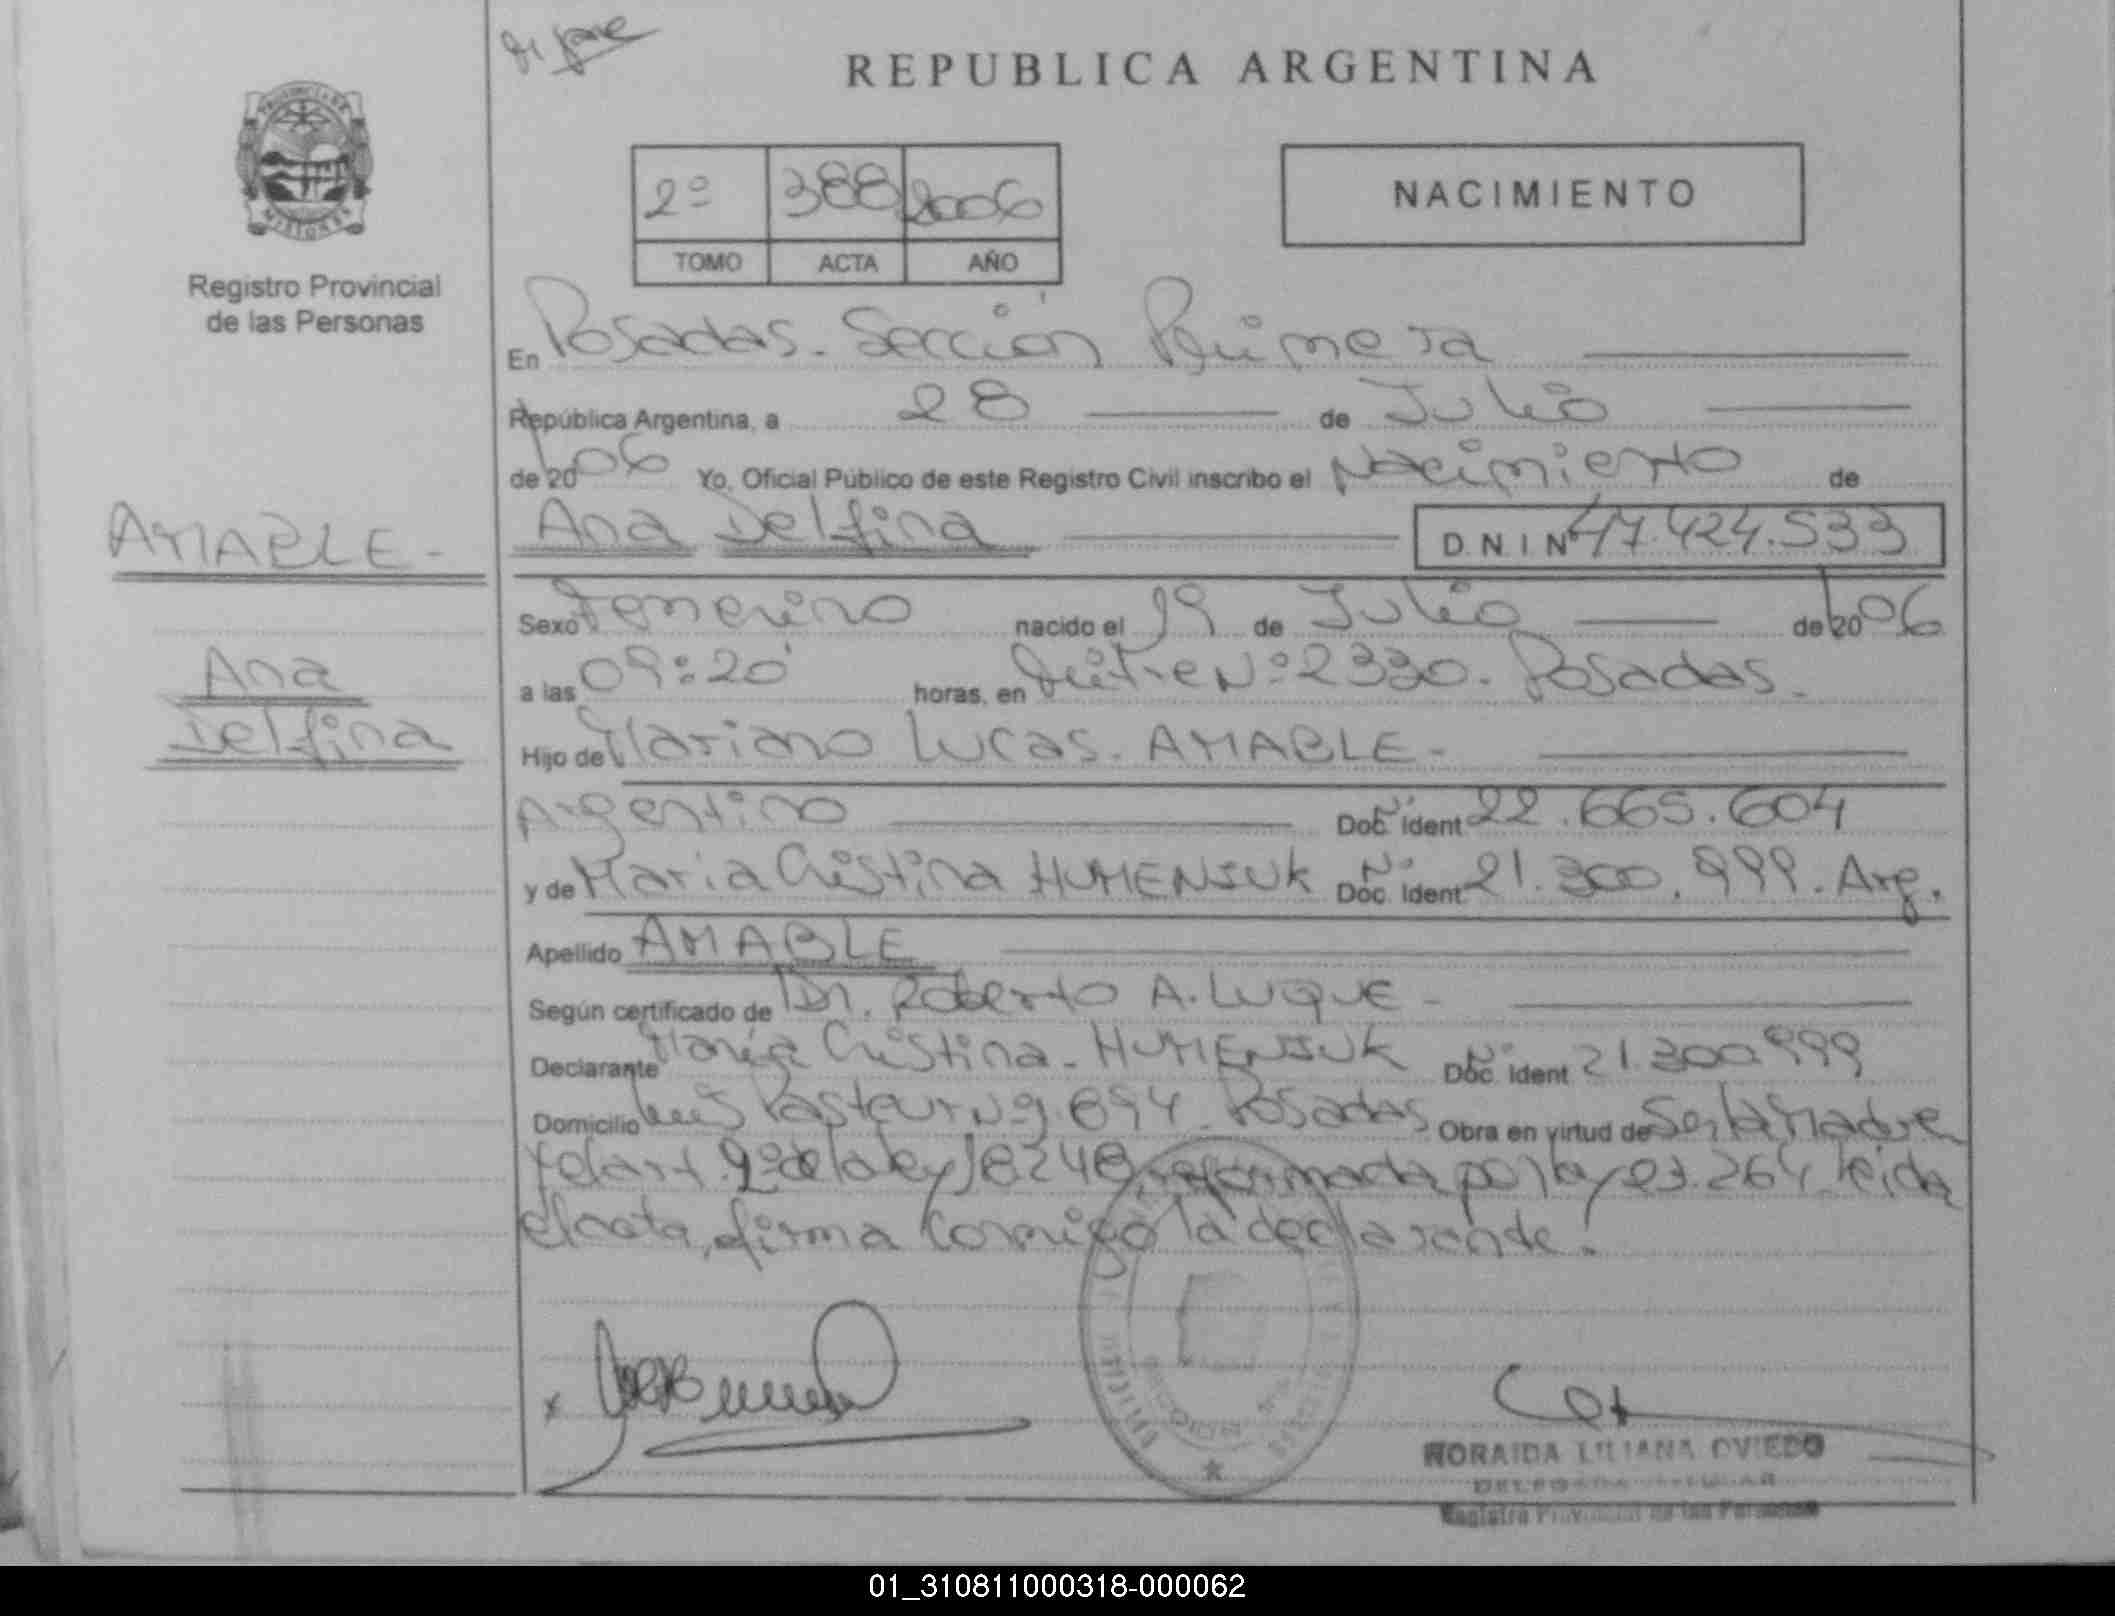 REPUBLICA ARGENTINA
PROVINCIA DE
MISIONES
Registro Provincial
de las Personas
2º 388 2006
TOMO ACTA AÑO
NACIMIENTO
En Posadas. Sección Primera
República Argentina, a 28 de Julio
de 20 06 Yo, Oficial Público de este Registro Civil inscribo el Nacimiento de
AMABLE -
Ana
Delfina
Ana Delfina D.N.I Nº 47.424.533
Sexo Femenino nacido el 19 de Julio de 20 06
a las 09:20 horas, en Nº 2330. Posadas.
Hijo de Mariano Lucas. AMABLE -
Argentino Nº Doc. Ident 22.665.604
y de Maria Cristina HUMENIUK Nº Doc. Ident 21.300.999. Arg.
Apellido AMABLE
Según certificado de Dr. Roberto A. Luque -
Declarante María Cristina - HUMENIUK Nº Doc. Ident 21.300.999
Domicilio Luis Pasteur Nº 894. Posadas Obra en virtud de Ser la Madre
y el art. 9º de la ley 18248, reformada por ley 23.264. Leida
el acta, firma conmigo la declarante.
x
HORAIDA LILIANA OVIEDO
DELEGADA TITULAR
Registro Provincial de las Personas
01_310811000318-000062